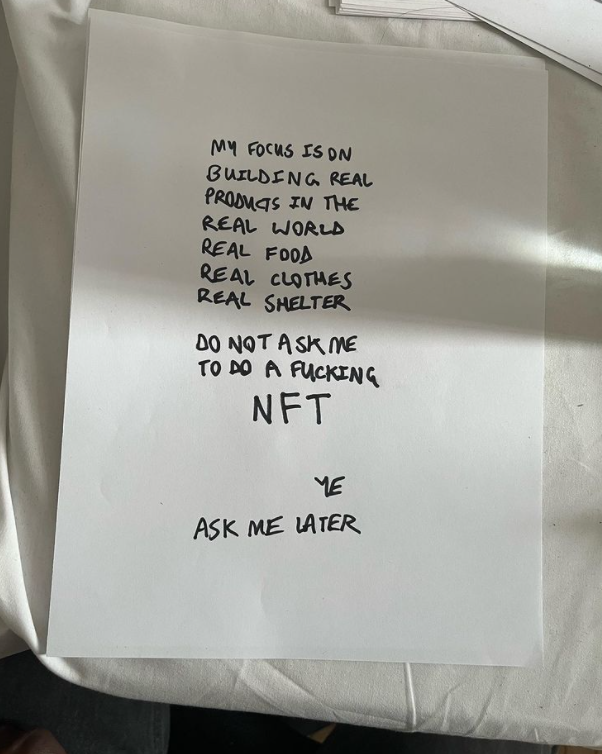 MY FOCUS IS ON
BUILDING REAL
PRODUCTS IN THE
REAL WORLD
REAL FOOD
REAL CLOTHES
REAL SHELTER
DO NOT ASK ME
TO DO A FUCKING
NFT
YE
ASK ME LATER